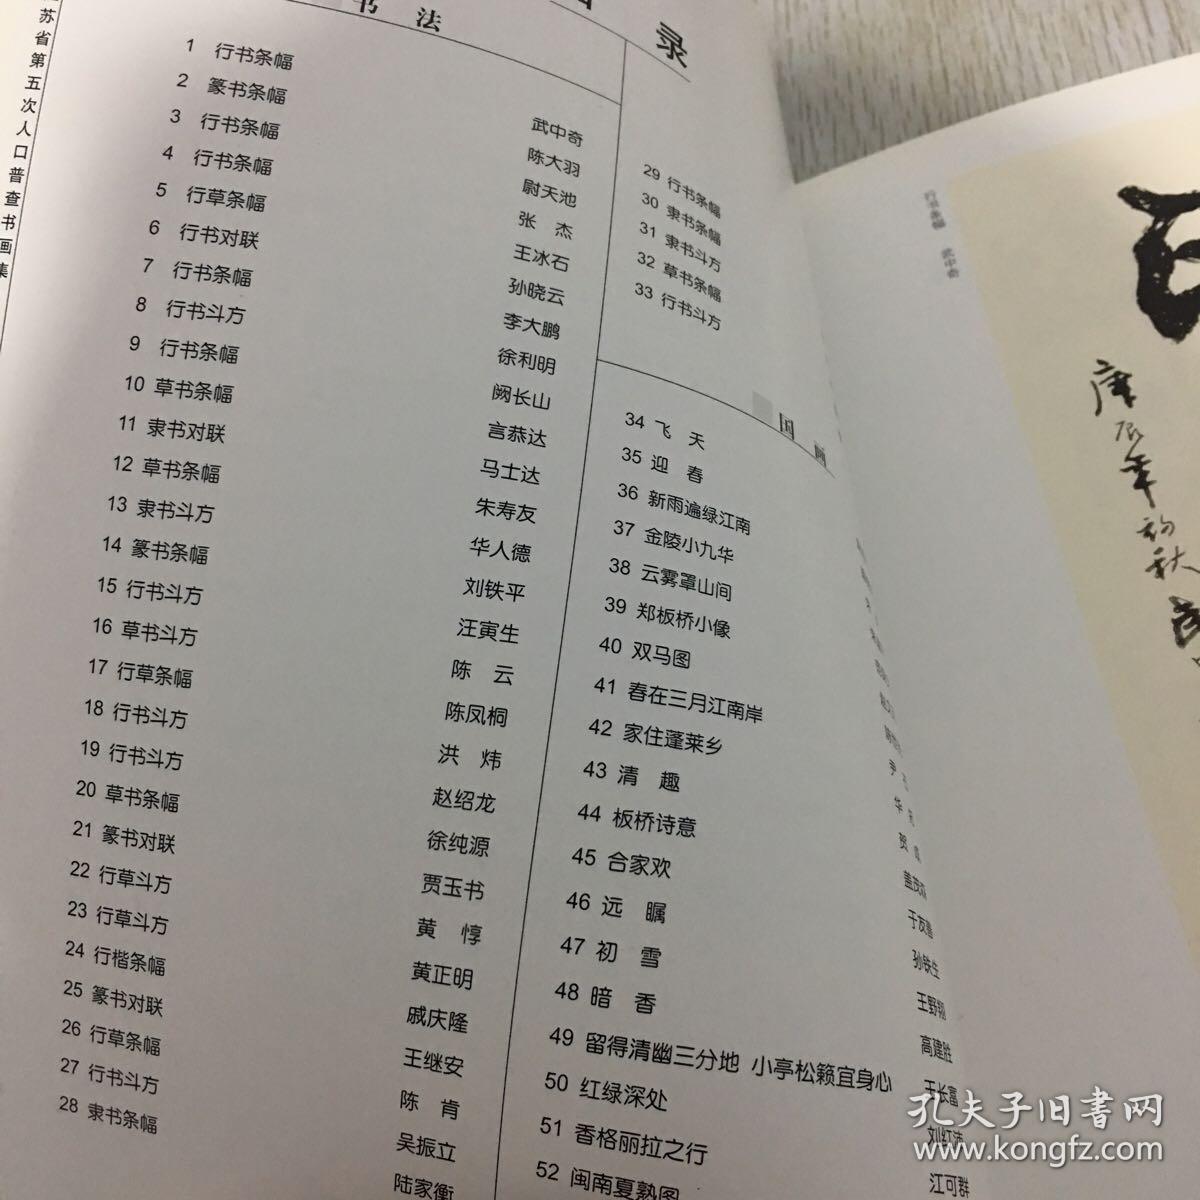 苏省第五次人口普查书画集
录
书 法
1 行书条幅 武中奇
2 篆书条幅 陈大羽
3 行书条幅 尉天池
4 行书条幅 张 杰
5 行草条幅 王冰石
6 行书对联 孙晓云
7 行书条幅 李大鹏
8 行书斗方 徐利明
9 行书条幅 阙长山
10 草书条幅 言恭达
11 隶书对联 马士达
12 草书条幅 朱寿友
13 隶书斗方 华人德
14 篆书条幅 刘铁平
15 行书斗方 汪寅生
16 草书斗方 陈 云
17 行草条幅 陈凤桐
18 行书斗方 洪 炜
19 行书斗方 赵绍龙
20 草书条幅 徐纯源
21 篆书对联 贾玉书
22 行草斗方 黄 惇
23 行草斗方 黄正明
24 行楷条幅 戚庆隆
25 篆书对联 王继安
26 行草条幅 陈 肯
27 行书斗方 吴振立
28 隶书条幅 陆家衡
29 行书条幅
30 隶书条幅
31 隶书斗方
32 草书条幅
33 行书斗方
国 画
34 飞 天
35 迎 春
36 新雨遍绿江南
37 金陵小九华
38 云雾罩山间
39 郑板桥小像
40 双马图
41 春在三月江南岸
42 家住蓬莱乡
43 清 趣
44 板桥诗意
45 合家欢
46 远 瞩
47 初 雪
48 暗 香
49 留得清幽三分地 小亭松籁宜身心
50 红绿深处
51 香格丽拉之行
52 闽南夏熟图
尹 石
华 拓
贺 成
盖茂森
于友善
孙铁生
王野翔
高建胜
于长富
刘红沛
江可群
行书条幅 武中奇
庚辰年初秋
孔夫子旧书网
www.kongfz.com